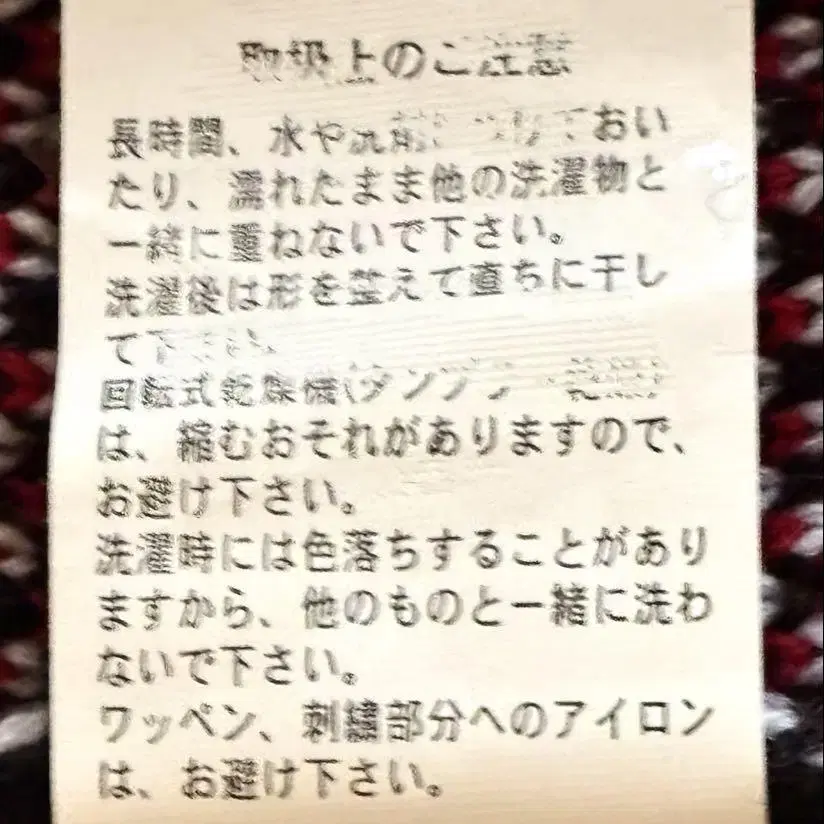 取扱上のご注意
長時間、水や洗剤 おい
たり、濡れたまま他の洗濯物と
一緒に重ねないで下さい。
洗濯後は形を整えて直ちに干し
て下さい。
回転式乾燥機(タンブラー
は、縮むおそれがありますので、
お避け下さい。
洗濯時には色落ちすることがあり
ますから、他のものと一緒に洗わ
ないで下さい。
ワッペン、刺繍部分へのアイロン
は、お避け下さい。